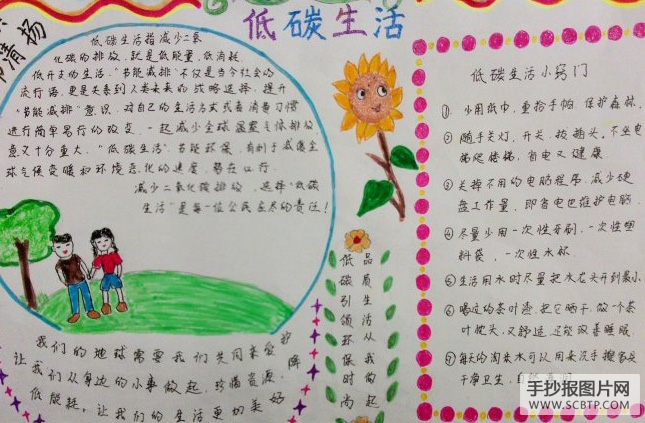 清扬
低碳生活
低碳生活指减少二氧
化碳的排放,就是低能量、低消耗
低开支的生活。"节能减排"不仅是当今社会的
流行语,更是关系到人类未来的战略选择。提升
"节能减排"意识,对自己的生活方式或者消费习惯
进行简单易行的改变,一起减少全球温室气体排放
意义十分重大。"低碳生活"节能环保,有利于减缓全
球气候变暖和环境恶化的速度,势在必行。
减少二氧化碳排放,选择"低碳
生活"是每一位公民应尽的责任!
我们的地球需要我们共同来爱护
让我们从身边的小事做起,珍惜资源,降
低能耗,让我们的生活更加美好
品质生活从时尚起
低碳引领环保
低碳生活小窍门
①少用纸巾,重拾手帕,保护森林
②随手关灯、开关、拔插头。不坐电
梯爬楼梯,省电又健康
③关掉不用的电脑程序,减少硬
盘工作量,即省电也维护电脑
④尽量少用一次性牙刷,一次性塑
料袋,一次性水杯
⑤生活用水时尽量把水龙头开到最小
⑥喝过的茶叶渣,把它晒干,做一个茶
叶枕头,又舒适,还能改善睡眠
⑦每天的淘米水可以用来洗手擦家具
干净卫生,自然
手抄报图片网
WWW.SCBTP.COM